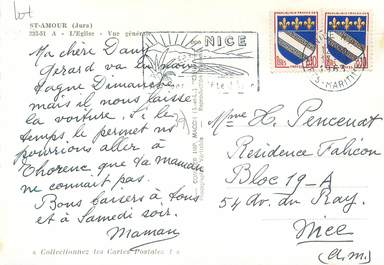 ST-AMOUR (Jura)
223-51 A - L'Eglise - Vue générale
Ma chère Dany
Gérard va en mon
tagne Dimanche
mais il nous laisse
la voiture. Si le
temps le permet ns
pourrions aller à
Thorenc que ta maman
ne connait pas.
Bons baisers à tous
et à Samedi soir.
Maman
« Collectionnez les Cartes Postales ! »
NICE
Mme H. Pencenat
Residence Falicon
Bloc 19-A
54 Av. du Ray.
Nice
(A.M.)